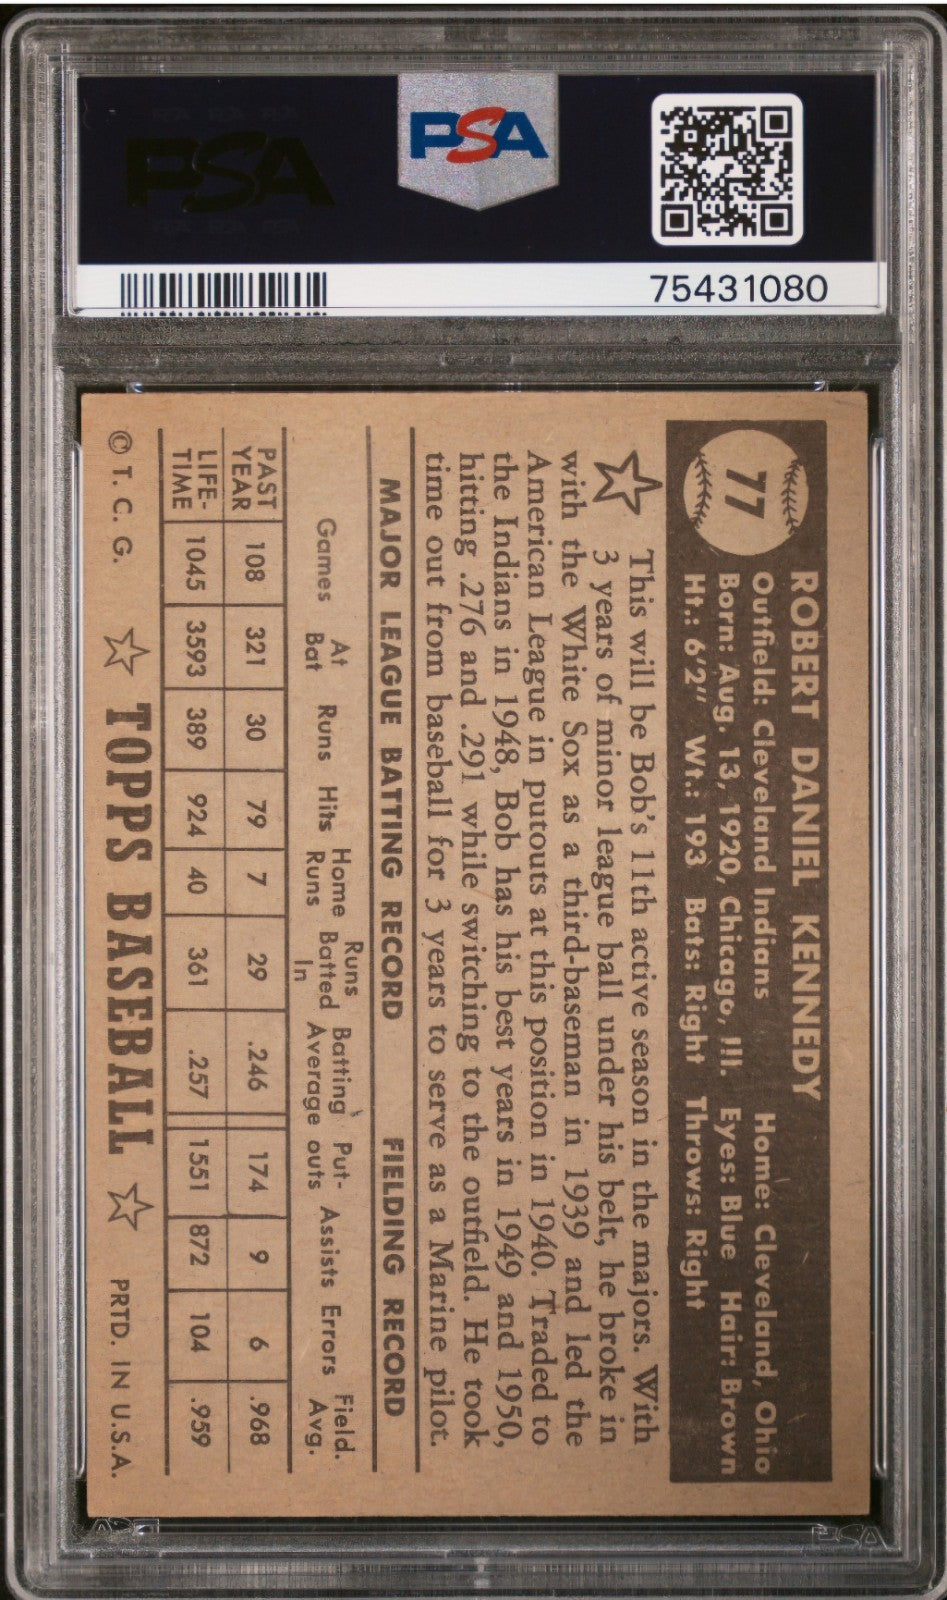 PSA
PSA
75431080
77
ROBERT DANIEL KENNEDY
Outfield: Cleveland Indians Home: Cleveland, Ohio
Born: Aug. 13, 1920, Chicago, Ill. Eyes: Blue Hair: Brown
Ht.: 6'2" Wt.: 193 Bats: Right Throws: Right
This will be Bob's 11th active season in the majors. With
3 years of minor league ball under his belt, he broke in
with the White Sox as a third-baseman in 1939 and led the
American League in putouts at this position in 1940. Traded to
the Indians in 1948, Bob has his best years in 1949 and 1950,
hitting .276 and .291 while switching to the outfield. He took
time out from baseball for 3 years to serve as a Marine pilot.
MAJOR LEAGUE BATTING RECORD FIELDING RECORD
Games At Bat Runs Hits Home Runs Runs Batted In Batting Average Put-outs Assists Errors Field. Avg.
PAST YEAR 108 321 30 79 7 29 .246 174 9 6 .968
LIFE-TIME 1045 3593 389 924 40 361 .257 1551 872 104 .959
© T. C. G. TOPPS BASEBALL PRTD. IN U.S.A.
PSA